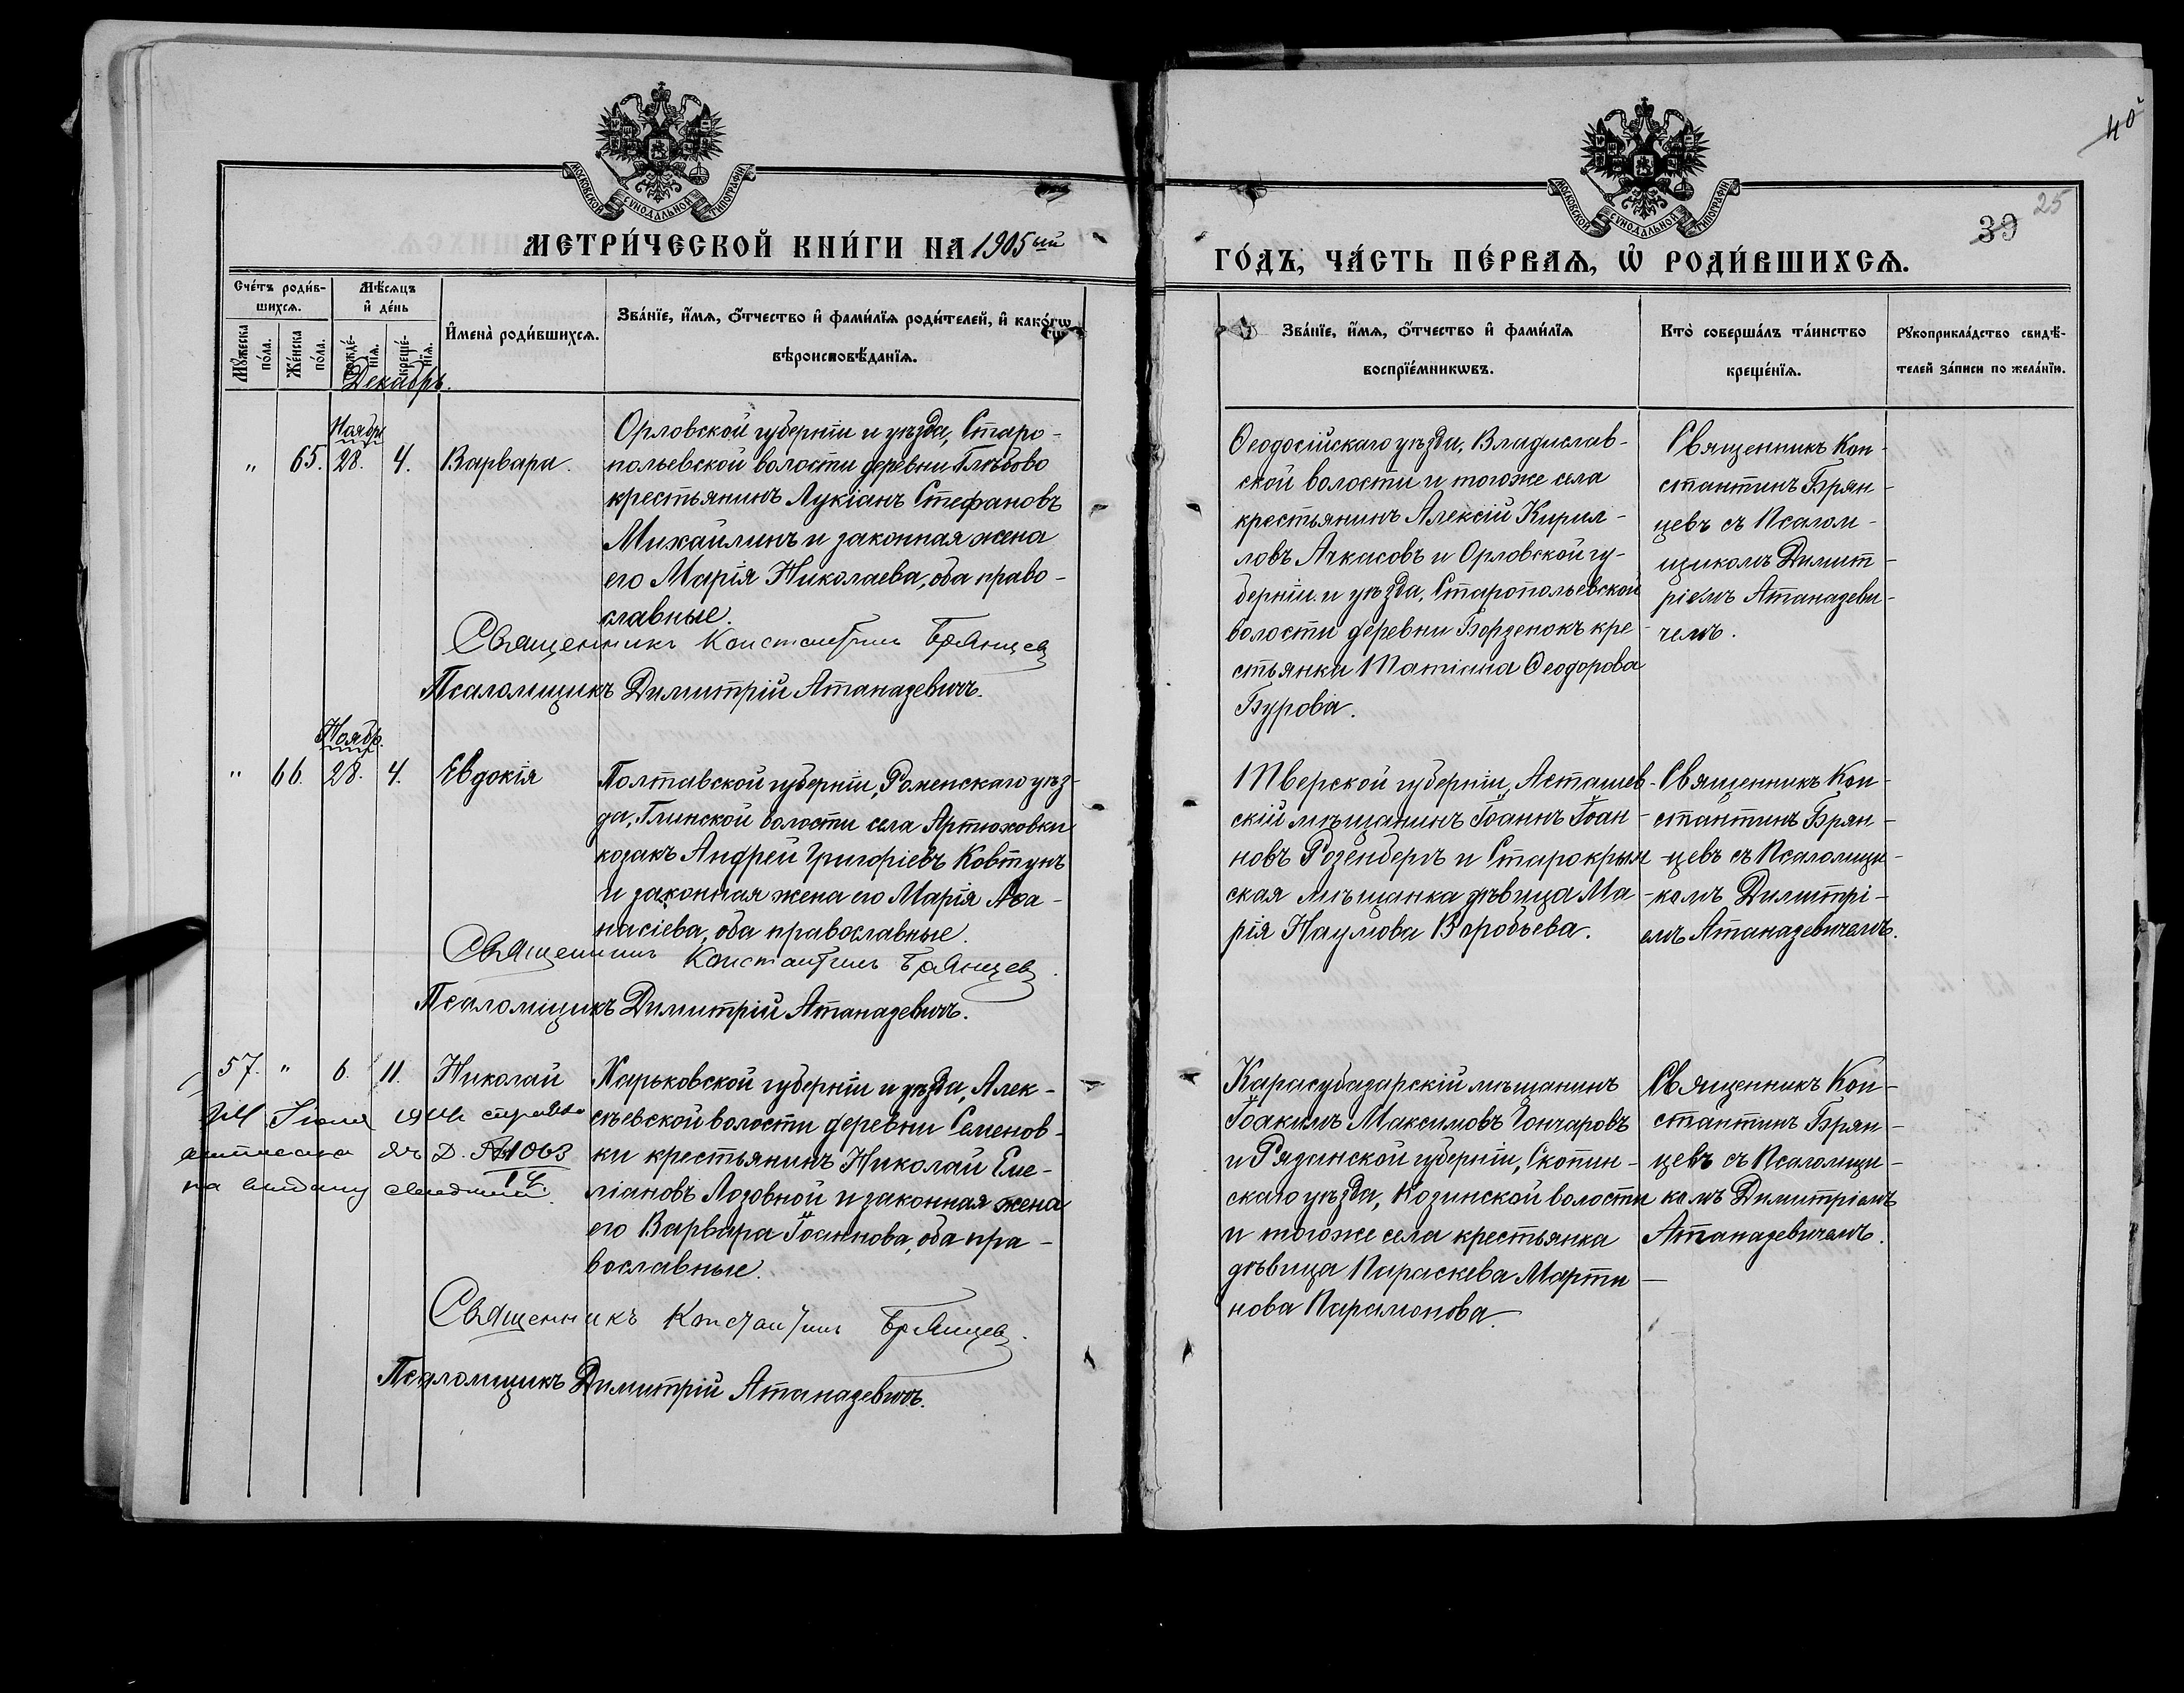 40
25
39
МОСКОВСКОЙ СѴНОДАЛЬНОЙ ТИПОГРАФІИ
МОСКОВСКОЙ СѴНОДАЛЬНОЙ ТИПОГРАФІИ
МЕТРИ́ЧЕСКОЙ КНИ́ГИ НА 1905ый
ГО́ДЪ, ЧА́СТЬ ПЕ́РВАѦ, Ѡ҆ РОДИ́ВШИХСѦ.
Сче́тъ роди́в-
шихсѧ.
Мꙋ́жеска по́ла.
Же́нска по́ла.
Мѣ́сѧцъ
и҆ де́нь
рожде́-нїѧ.
креще́-нїѧ.
И҆мена̀ роди́вшихсѧ.
Зва́нїе, и҆́мѧ, ѻ҆́тчество и҆ фами́лїѧ роди́телей, и҆ како́гѡ
вѣроисповѣ́данїѧ.
Зва́нїе, и҆́мѧ, ѻ҆́тчество и҆ фами́лїѧ
воспрїе́мникѡвъ.
Кто̀ соверша́лъ та́инство
креще́нїѧ.
Рꙋкоприкла́дство свидѣ́-
телей за́писи по жела́нїю.
Декабрь.
Ноябр
" 65. 28. 4. Варвара.
Орловской губерніи и уѣзда, Старо-
польевской волости деревни Глѣбово
крестьянинъ Лукіанъ Стефановъ
Михайлинъ и законная жена
его Марія Николаева, оба право-
славные.
Священникъ Константинъ Брянцевъ
Псаломщикъ Димитрій Атаназевичъ.
Ѳеодосійскаго уѣзда, Владислав-
ской волости и тогоже села
крестьянинъ Алексій Кирил-
ловъ Ачкасовъ и Орловской гу-
берніи и уѣзда, Старопольевской
волости деревни Борзенокъ кре-
стьянка Татіана Ѳеодорова
Бурова.
Священникъ Кон-
стантинъ Брян-
цевъ съ Псалом-
щикомъ Димит-
ріемъ Атаназеви-
чемъ.
Ноябр.
" 66. 28. 4. Евдокія
Полтавской губерніи, Роменскаго уѣз-
да, Глинской волости села Артюховки
козакъ Андрей Григоріевъ Ковтунъ
и законная жена его Марія Аѳа-
насіева, оба православные.
Священникъ Константинъ Брянцевъ.
Псаломщикъ Димитрій Атаназевичъ.
Тверской губерніи, Асташев-
скій мѣщанинъ Іоаннъ Іоан-
новъ Розенбергъ и Старокрым-
ская мѣщанка дѣвица Ма-
рія Наумова Воробьева.
Священникъ Кон-
стантинъ Брян-
цевъ съ Псаломщи-
-комъ Димитрі-
емъ Атаназевичемъ.
57. " 6. 11. Николай
Харьковской губерніи и уѣзда, Алек-
сѣевской волости деревни Семенов-
ки крестьянинъ Николай Еме-
ліановъ Лозовной и законная жена
его Варвара Іоаннова, оба пра-
вославные.
Іюля
Д. №1063
14.
на выдачу
Священникъ Константинъ Брянцевъ.
Псаломщикъ Димитрій Атаназевичъ.
Карасубазарскій мѣщанинъ
Іоакимъ Максимовъ Гончаровъ
и Рязанской губерніи, Скопин-
скаго уѣзда, Козинской волости
и тогоже села крестьянка
дѣвица Параскева Марти-
нова Парамонова.
Священникъ Кон-
стантинъ Брян-
цевъ съ Псаломщи-
комъ Димитріемъ
Атаназевичемъ.